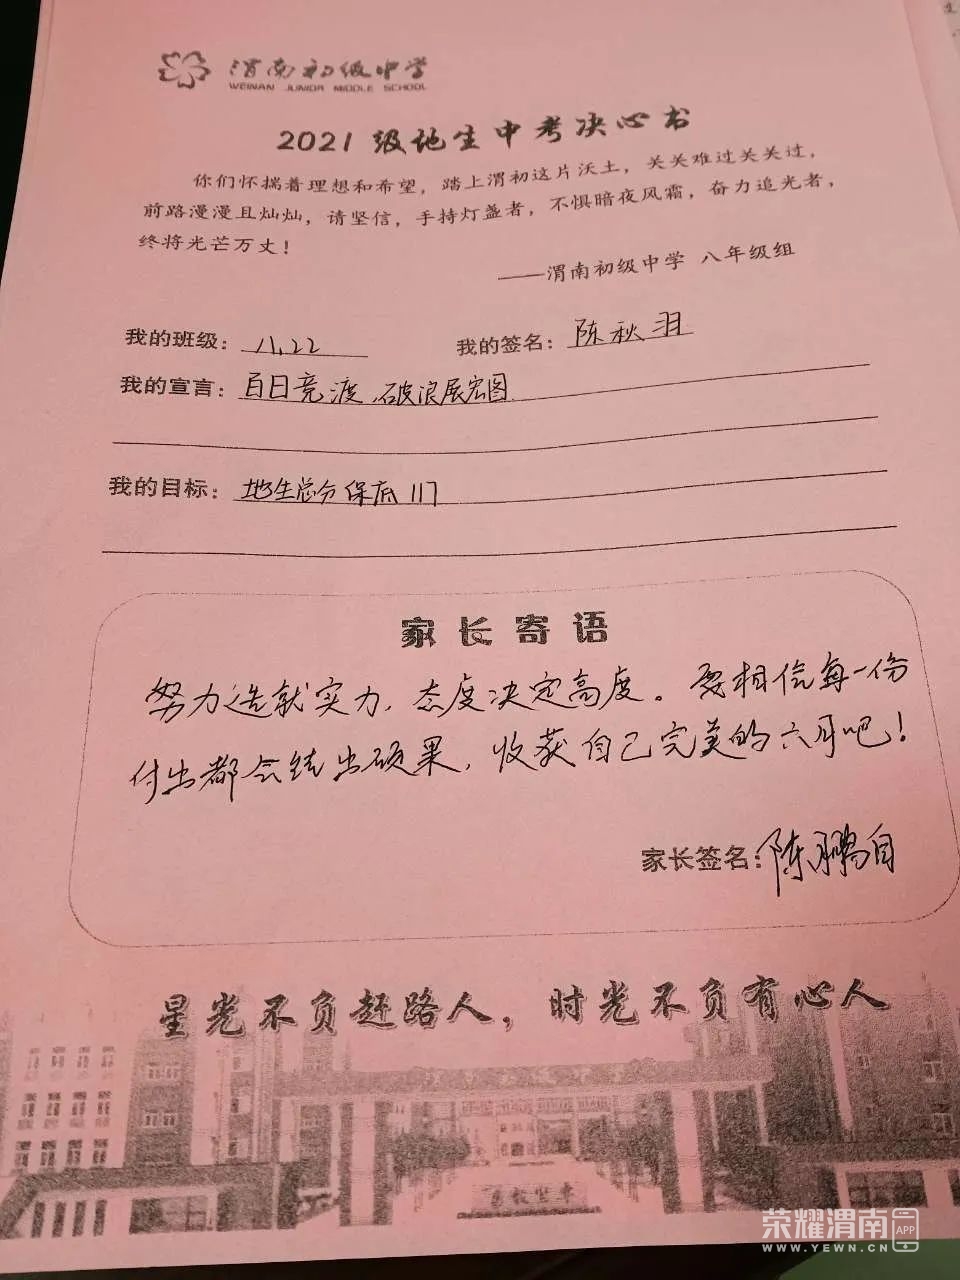 渭南初级中学
WEINAN JUNIOR MIDDLE SCHOOL
2021级地生中考决心书
你们怀揣着理想和希望，踏上渭初这片沃土，关关难过关关过，
前路漫漫且灿灿，请坚信，手持灯盏者，不惧暗夜风霜，奋力追光者，
终将光芒万丈！
——渭南初级中学 八年级组
我的班级：八.22 我的签名：陈秋羽
我的宣言：百日竞渡，破浪展宏图
我的目标：地生总分保底117
家长寄语
努力造就实力，态度决定高度。要相信每一份
付出都会结出硕果，收获自己完美的六月吧！
家长签名：陈鹏自
星光不负赶路人，时光不负有心人
荣耀渭南APP
WWW.YEWN.CN